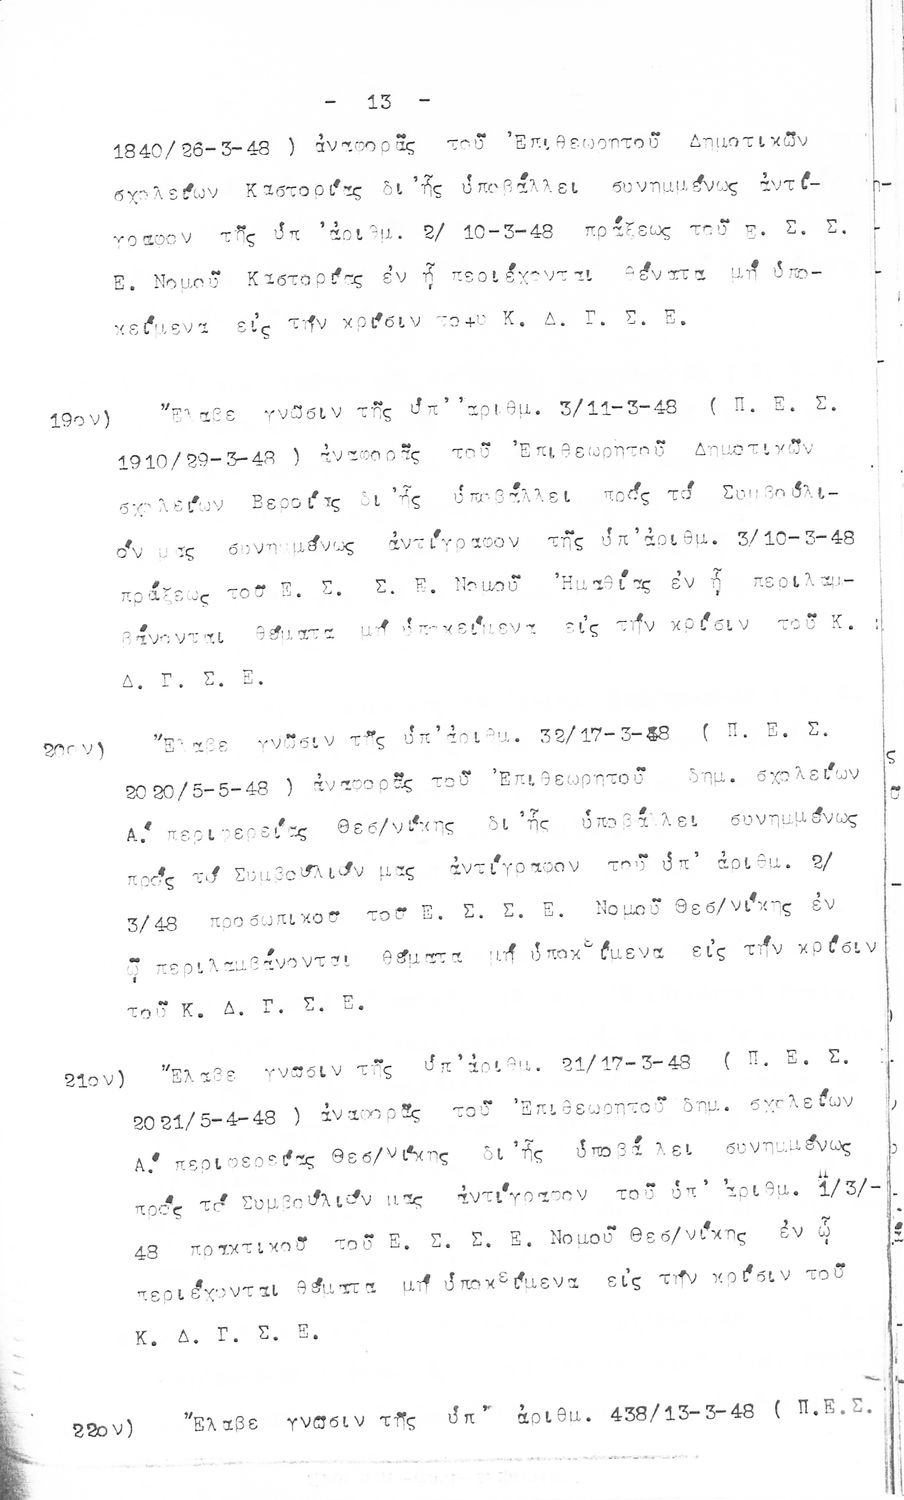 - 13 -
1840/26-3-48 ) ἀναφορᾶς τοῦ Ἐπιθεωρητοῦ Δημοτικῶν
σχολείων Καστορίας δι' ἧς ὑποβάλλει συνημμένως ἀντί-
γραφον τῆς ὑπ 'ἀριθμ. 2/ 10-3-48 πράξεως τοῦ Ε. Σ. Σ.
Ε. Νομοῦ Καστορίας ἐν ᾗ περιέχονται θέματα μή ὑπο-
κείμενα εἰς τήν κρίσιν το+υ Κ. Δ. Γ. Σ. Ε.
19ον) Ἔλαβε γνῶσιν τῆς ὑπ' 'αριθμ. 3/11-3-48 ( Π. Ε. Σ.
1910/29-3-48 ) ἀναφορᾶς τοῦ Ἐπιθεωρητοῦ Δημοτικῶν
σχολείων Βεροίας δι 'ἧς ὑποβάλλει πρός τό Συμβούλι-
όν μας συνημμένως ἀντίγραφον τῆς ὑπ'ἀριθμ. 3/10-3-48
πράξεως τοῦ Ε. Σ. Σ. Ε. Νομοῦ Ἠμαθίας ἐν ᾗ περιλαμ-
βάνονται θέματα μή ὑποκείμενα εἰς τήν κρίσιν τοῦ Κ.
Δ. Γ. Σ. Ε.
20ον) Ἔλαβε γνῶσιν τῆς ὑπ'ἀριθμ. 32/17-3-48 ( Π. Ε. Σ.
2020/5-5-48 ) ἀναφορᾶς τοῦ Ἐπιθεωρητοῦ δημ. σχολείων
Α.' περιφερείας Θεσ/νίκης δι 'ἧς ὑποβάλλει συνημμένως
πρός τό Συμβούλιόν μας ἀντίγραφον τοῦ ὑπ' ἀριθμ. 2/
3/48 προσωπικοῦ τοῦ Ε. Σ. Σ. Ε. Νομοῦ Θεσ/νίκης ἐν
ᾧ περιλαμβάνονται θέματα μή ὑποκείμενα εἰς τήν κρίσιν
τοῦ Κ. Δ. Γ. Σ. Ε.
21ον) Ἔλαβε γνῶσιν τῆς ὑπ'ἀριθμ. 21/17-3-48 ( Π. Ε. Σ.
2021/5-4-48 ) ἀναφορᾶς τοῦ Ἐπιθεωρητοῦ δημ. σχολείων
Α.' περιφερείας Θεσ/νίκης δι 'ἧς ὑποβά λει συνημμένως
πρός τό Συμβούλιόν μας ἀντίγραφον τοῦ ὑπ' 'αριθμ. 1/3/-
48 πρακτικοῦ τοῦ Ε. Σ. Σ. Ε. Νομοῦ Θεσ/νίκης ἐν ᾧ
περιέχονται θέματα μή ὑποκείμενα εἰς τήν κρίσιν τοῦ
Κ. Δ. Γ. Σ. Ε.
22ον) Ἔλαβε γνῶσιν τῆς ὑπ' ἀριθμ. 438/13-3-48 ( Π.Ε.Σ.